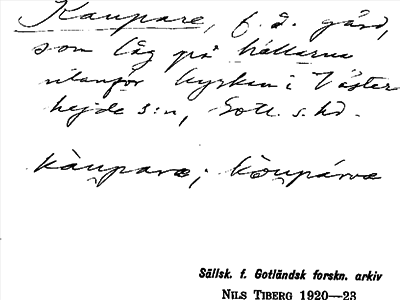 Kaupare, f. d. gård,
som låg på hällarna
utanför kyrkan i Väster
hejde s:n, Gotl. s. hd.
kàupara; kòupárvæ
Sällsk. f. Gotländsk forskn. arkiv
NILS TIBERG 1920—23